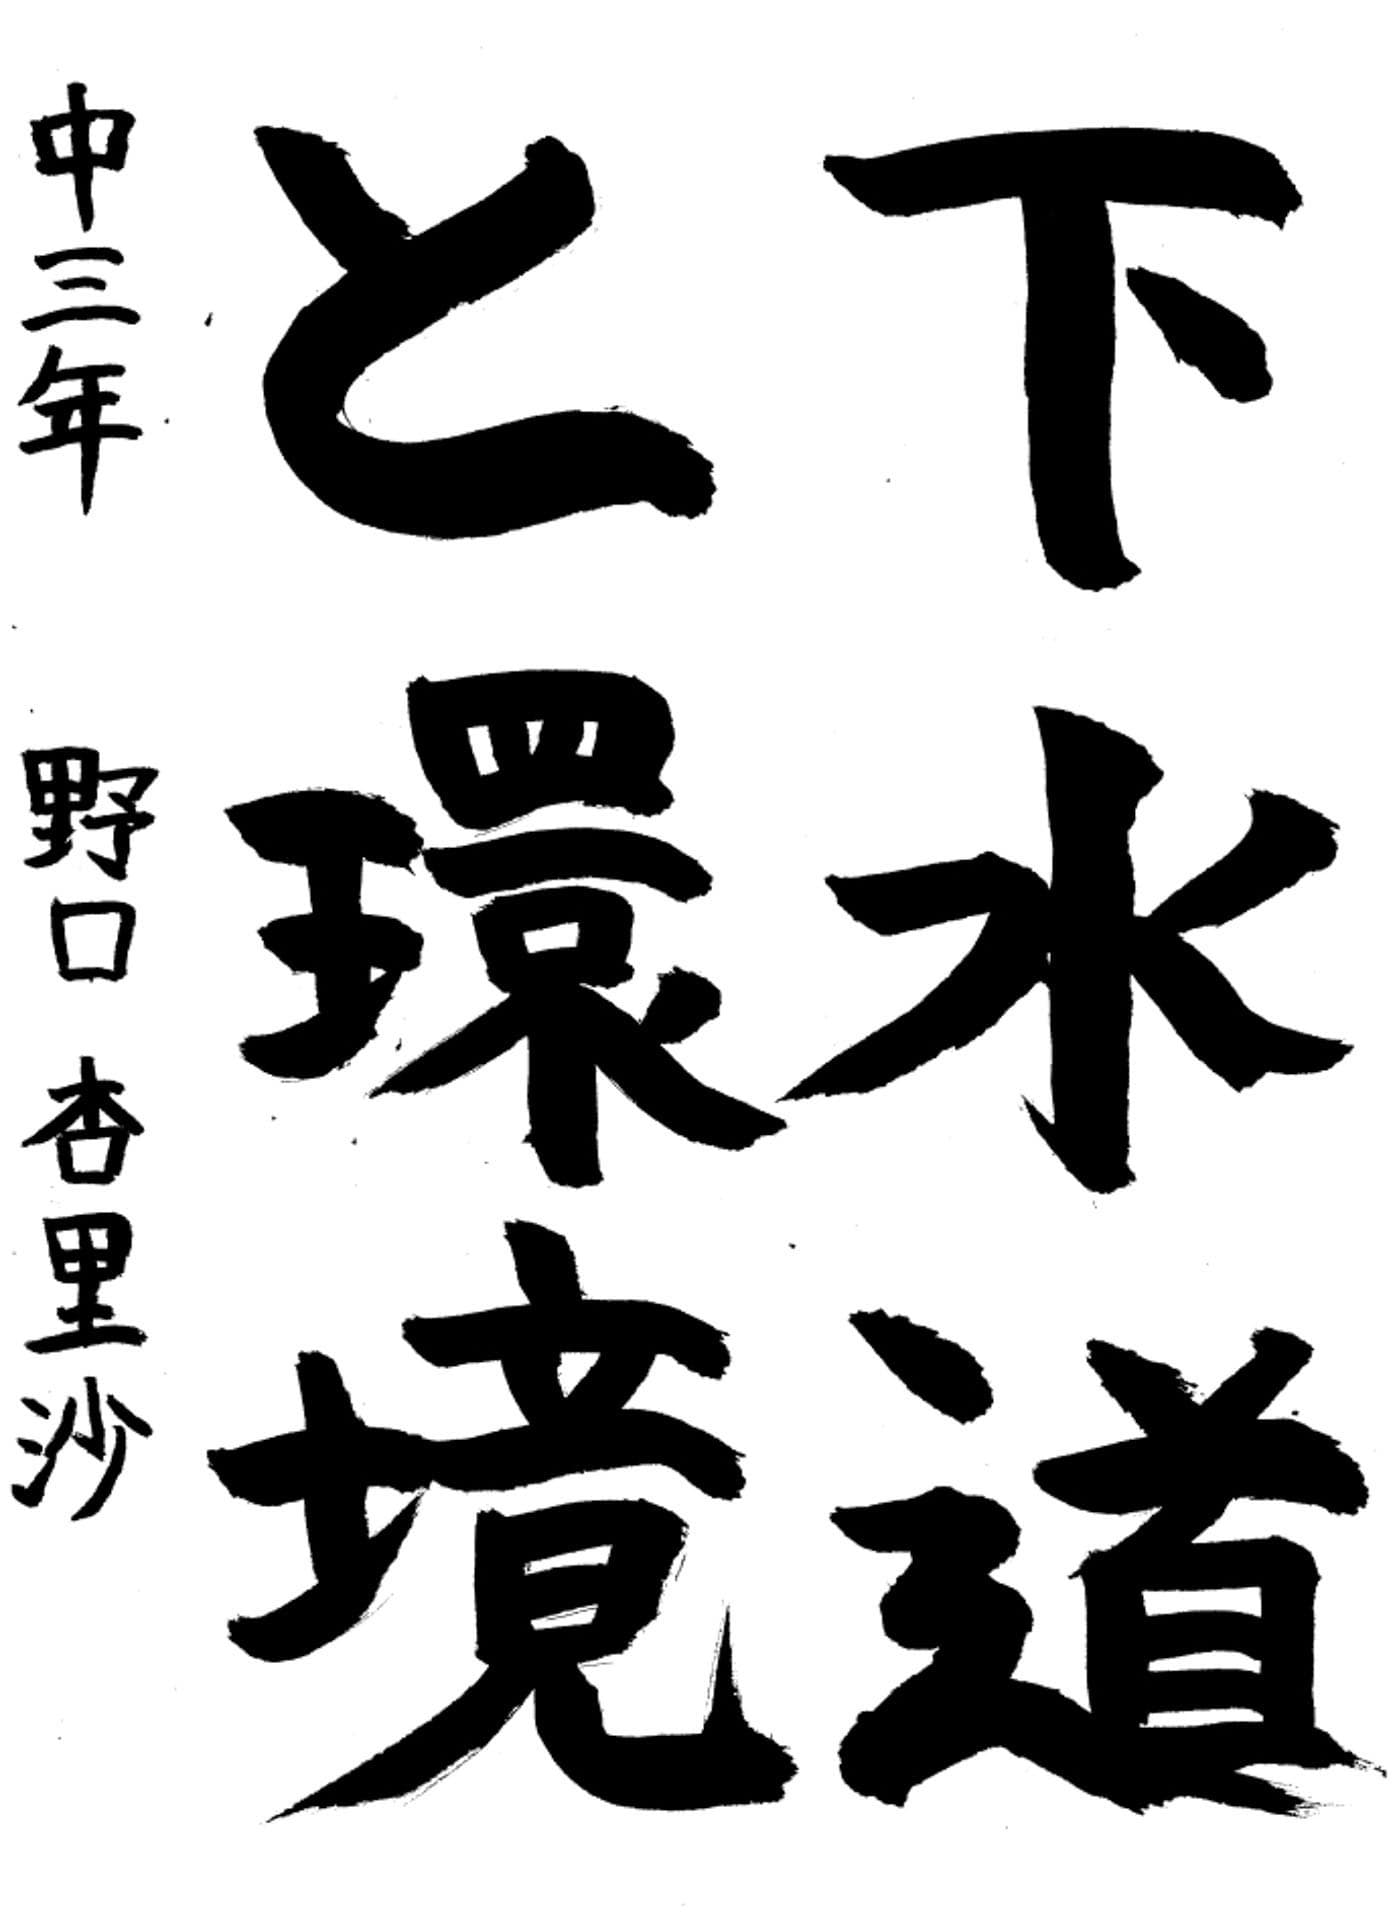 下水道
と環境
中三年 野口 杏里沙